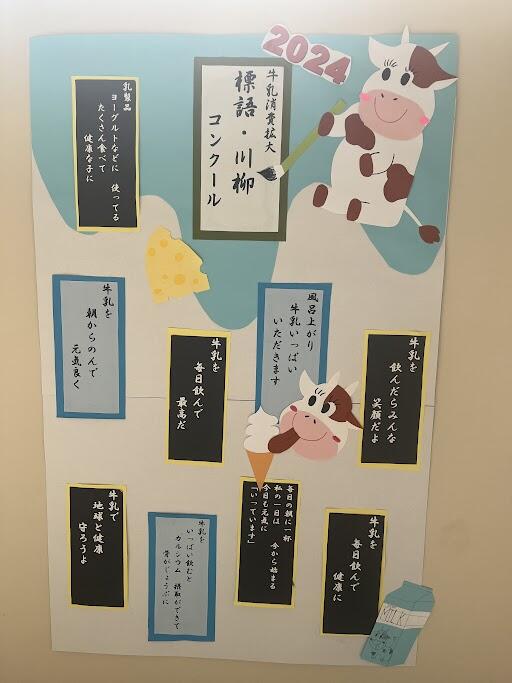 2024
牛乳消費拡大
標語・川柳
コンクール
乳製品
ヨーグルトなどに 使ってる
たくさん食べて
健康な子に
風呂上がり
牛乳いっぱい
いただきます
牛乳を
朝からのんで
元気良く
牛乳を
飲んだらみんな
笑顔だよ
牛乳を
毎日飲んで
最高だ
毎日の朝に一杯
私の一日は 今から始まる
今日も元気に
「いっています」
牛乳を
毎日飲んで
健康に
牛乳を
いっぱい飲むと
カルシウム 摂取ができて
骨がじょうぶに
牛乳で
地球と健康
守ろうよ
MILK